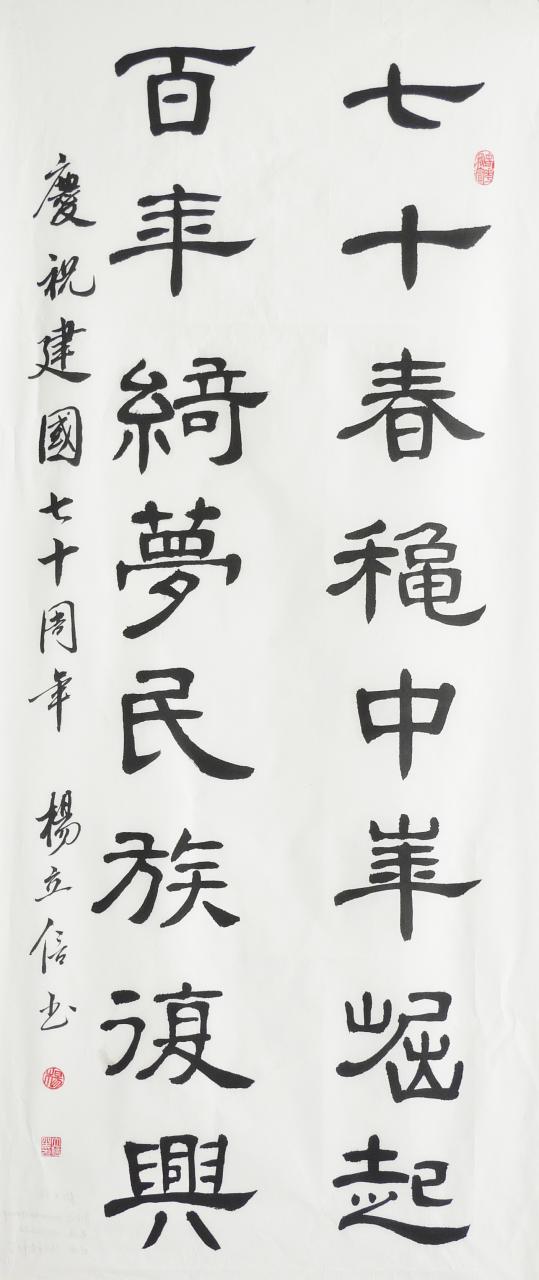 七十春穐中崋崛起
百年綺夢民族復興
慶祝建國七十周年 楊立信书